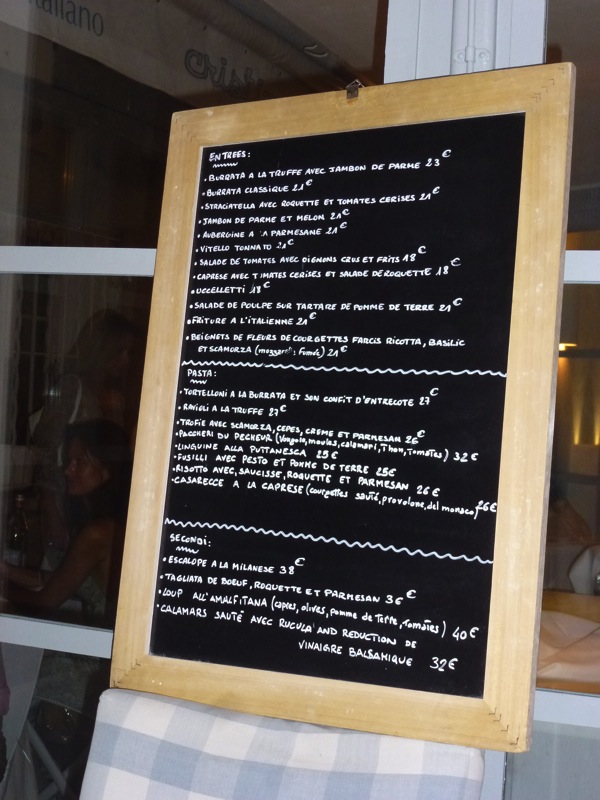 italiano
ENTREES:
• BURRATA A LA TRUFFE AVEC JAMBON DE PARME 23€
• BURRATA CLASSIQUE 21€
• STRACIATELLA AVEC ROQUETTE ET TOMATES CERISES 21€
• JAMBON DE PARME ET MELON 21€
• AUBERGINE A LA PARMESANE 21€
• VITELLO TONNATO 21€
• SALADE DE TOMATES AVEC OIGNONS CRUS ET FRITS 18€
• CAPRESE AVEC TOMATES CERISES ET SALADE DE ROQUETTE 18€
• UCCELLETTI 18€
• SALADE DE POULPE SUR TARTARE DE POMME DE TERRE 21€
• FRITURE A L'ITALIENNE 21€
• BEIGNETS DE FLEURS DE COURGETTES FARCIS RICOTTA, BASILIC
ET SCAMORZA (mozzarella fumée) 21€
PASTA:
• TORTELLONI A LA BURRATA ET SON CONFIT D'ENTRECOTE 27€
• RAVIOLI A LA TRUFFE 27€
• TROFIE AVEC SCAMORZA, CEPES, CREME ET PARMESAN 26€
• PACCHERI DU PECHEUR (Vongole, moules, calamari, Thon, Tomates) 32€
• LINGUINE ALLA PUTTANESCA 25€
• FUSILLI AVEC PESTO ET POMME DE TERRE 25€
• RISOTTO AVEC, SAUCISSE, ROQUETTE ET PARMESAN 26€
• CASARECCE A LA CAPRESE (courgettes sauté, provolone, del monaco) 26€
SECONDI:
• ESCALOPE A LA MILANESE 38€
• TAGLIATA DE BOEUF, ROQUETTE ET PARMESAN 36€
• LOUP ALL'AMALFITANA (capres, olives, pomme de Terre, Tomates) 40€
• CALAMARS SAUTÉ AVEC RUCULA AND REDUCTION DE
VINAIGRE BALSAMIQUE 32€